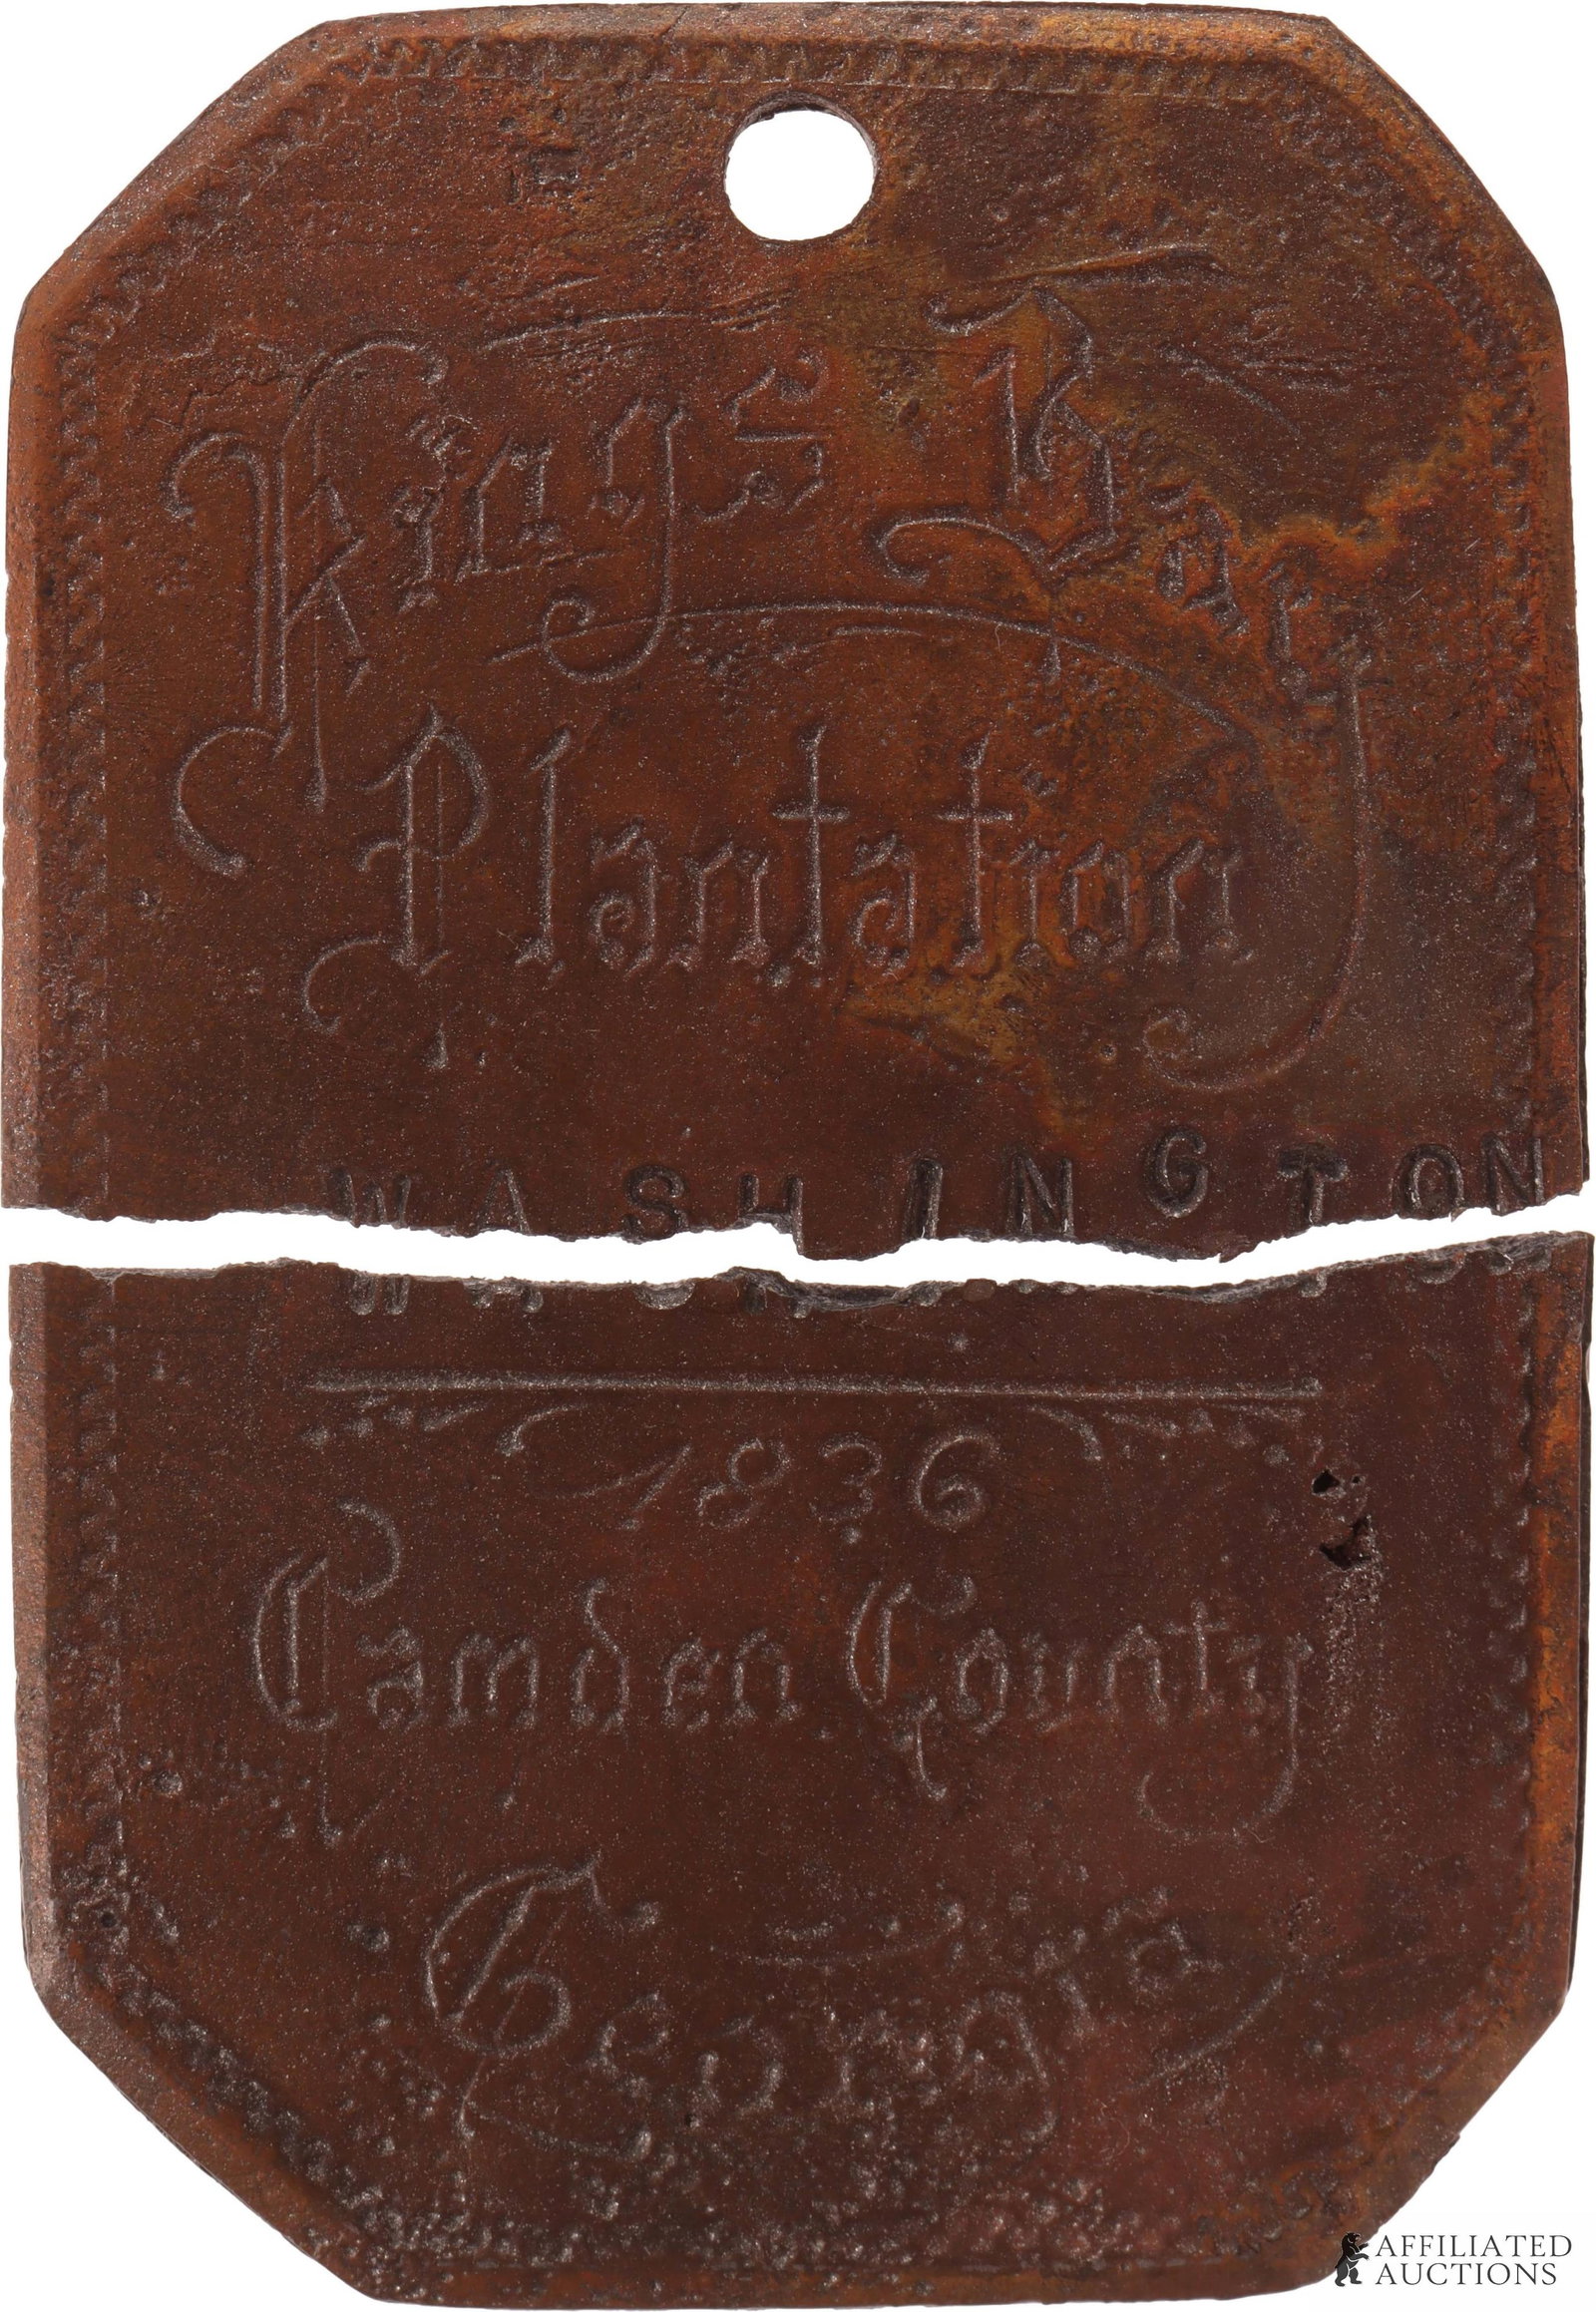 Kings Bay
Plantation
WASHINGTON
1836
Camden County
Georgia
AFFILIATED
AUCTIONS